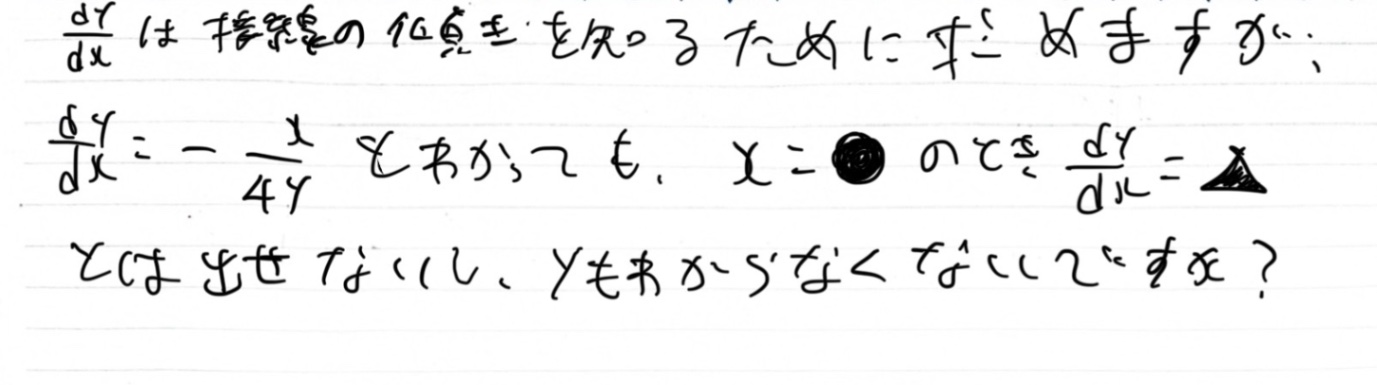 dy/dx は 接線の傾きを知るためにもとめますが、
dy/dx = - x/4y とわかっても、x = ● のとき dy/dx = ▲
とは出せないし、yもわからなくないですか?